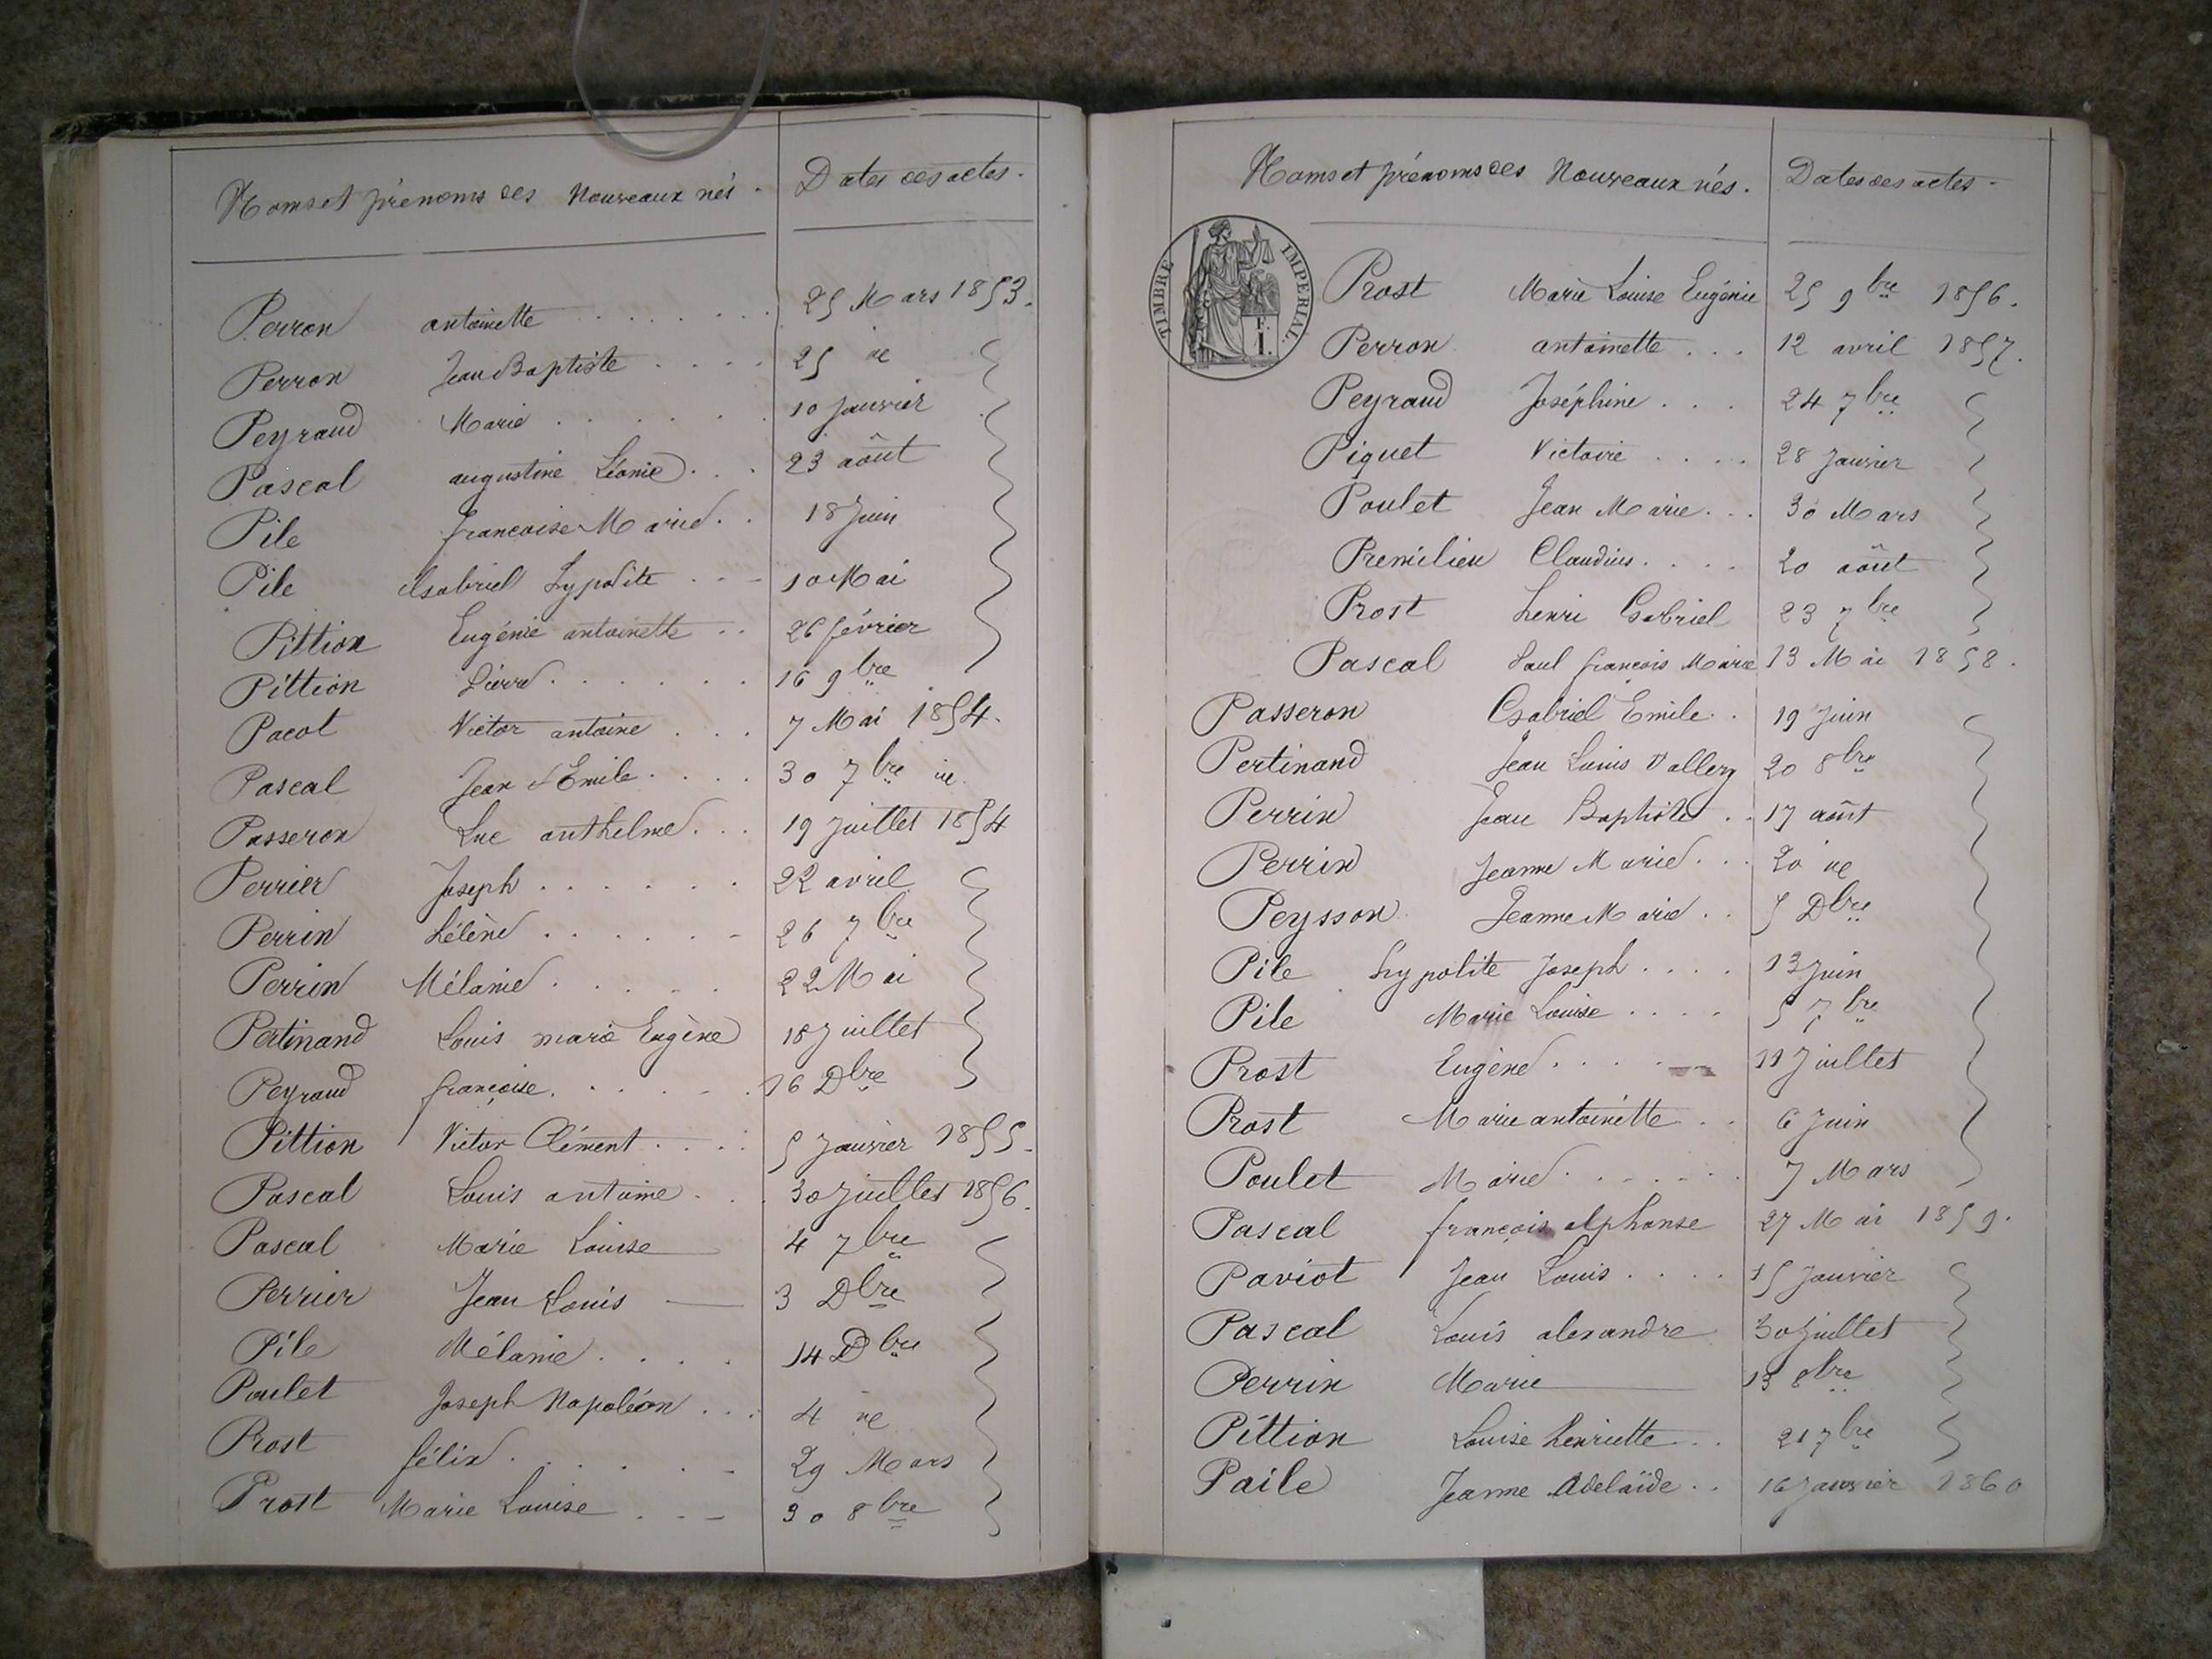 Noms et prénoms des Nouveaux nés. Dates des actes.
Perron antoinette 25 Mars 1853.
Perron Jean Baptiste 25 de
Peyraud Marie 10 Janvier
Pascal augustine Léonie 23 août
Pile francoise Marie 18 Juin
Pile Gabriel hypolite 10 Mai
Pittion Eugénie antoinette 26 février
Pittion Pierre 16 9bre
Pacot Victor antoine 7 Mai 1854.
Pascal Jean Emile 30 7bre de
Passeron Luc anthelme 19 Juillet 1854
Perrier Joseph 22 avril
Perrin hélène 26 7bre
Perrin Mélanie 22 Mai
Pertinand Louis marie Eugène 18 Juillet
Peyraud françoise 16 Dbre
Pittion Victor Clément 5 Janvier 1855.
Pascal Louis antoine 30 Juillet 1856.
Pascal Marie Louise 4 7bre
Perrier Jean Louis 3 Dbre
Pile Mélanie 14 Dbre
Poulet Joseph Napoléon 4 de
Prost félix 29 Mars
Prost Marie Louise 30 8bre
Noms et prénoms des Nouveaux nés. Dates des actes.
TIMBRE IMPERIAL.
1 F.
Prost Marie Louise Eugénie 25 9bre 1856.
Perron antoinette 12 avril 1857.
Peyraud Joséphine 24 7bre
Piguet Victoire 28 Janvier
Poulet Jean Marie 30 Mars
Premilieu Claudius 20 août
Prost henri Gabriel 23 7bre
Pascal Paul françois Marie 13 Mai 1858.
Passeron Gabriel Emile 19 Juin
Pertinand Jean Louis Vallery 20 8bre
Perrin Jean Baptiste 17 août
Perrin Jeanne Marie 20 de
Peysson Jeanne Marie 5 Dbre
Pile hypolite Joseph 13 Juin
Pile Marie Louise 5 7bre
Prost Eugène 11 Juillet
Prost Marie antoinette 6 Juin
Poulet Marie 7 Mars
Pascal françois alphonse 27 Mai 1859.
Paviot Jean Louis 15 Janvier
Pascal Louis alexandre 30 Juillet
Perrin Marie 13 8bre
Pittion Louise henriette 21 7bre
Paile Jeanne Adelaïde 16 Janvier 1860